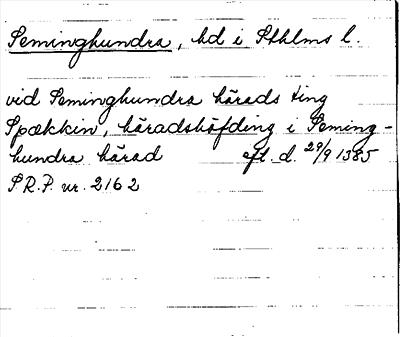 Seminghundra, hd i Sthlms l.
vid Seminghundra härads ting
Spækkin, häradshöfding i Seming-
hundra härad eft. d. 29/9 1385
S.R.P. nr. 2162